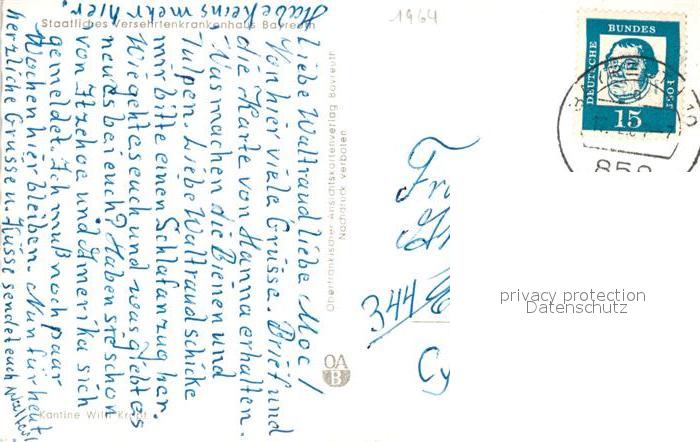 1964
Staatliches Versehrtenkrankenhaus Bayreuth
Liebe Waltraud liebe Moc!
Von hier viele Grüsse. Brief und
die Karte von Hanna erhalten.
Was machen die Bienen und
Tulpen. Liebe Waltraud schicke
mir bitte einen Schlafanzug her.
Wie geht es euch und was giebt es
neues bei euch? Haben sie schon
von Itzehoe und Amerika sich
gemeldet. Ich muß noch paar
Wochen hier bleiben. Nun für heut
herzliche Grüsse u. Küsse sendet euch
Habe keins mehr hier.
Kantine Willi
Oberfränkischer Ansichtskartenverlag Bayreuth
Nachdruck verboten
OA
B
DEUTSCHE
BUNDES
POST
15
858
344
privacy protection
Datenschutz